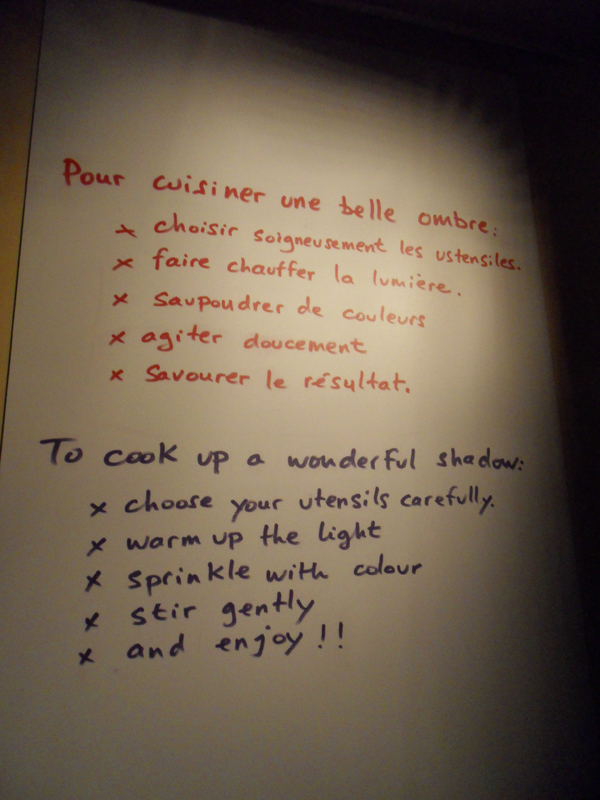 Pour cuisiner une belle ombre:
x choisir soigneusement les ustensiles.
x faire chauffer la lumière.
x saupoudrer de couleurs
x agiter doucement
x Savourer le résultat.
To cook up a wonderful shadow:
x choose your utensils carefully.
x warm up the light
x sprinkle with colour
x stir gently
x and enjoy!!